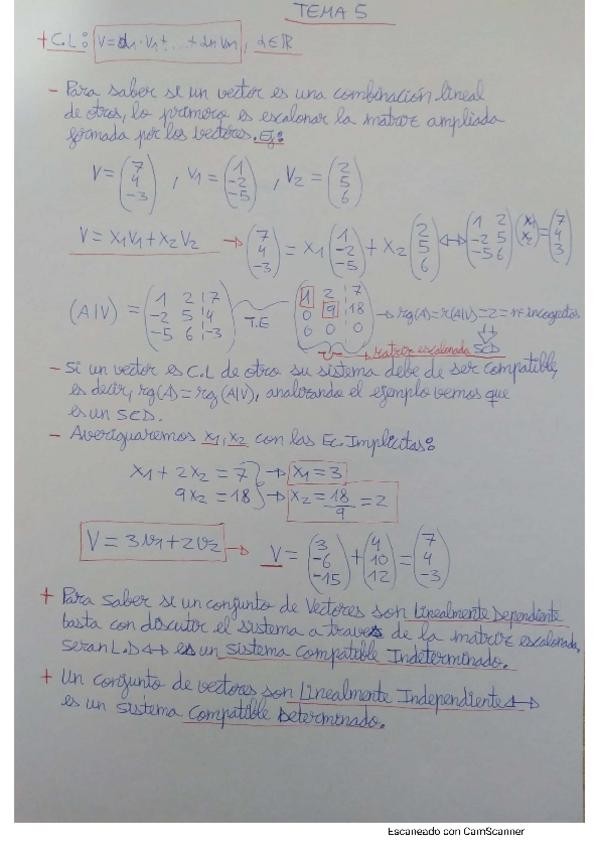 TEMA 5
+ C.L: V = α1·V1 + ... + αn Vn, α∈ℝ
- Para saber si un vector es una combinación lineal
de otros, lo primero es escalonar la matriz ampliada
formada por los vectores. Ej:
V = (7 4 -3), V1 = (1 -2 -5), V2 = (2 5 6)
V = X1V1 + X2V2 → (7 4 -3) = X1 (1 -2 -5) + X2 (2 5 6) ↔ (1 2 -2 5 -5 6) (X1 X2) = (7 4 3)
(A|V) = (1 2 | 7 -2 5 | 4 -5 6 | -3) T.E (1 2 | 7 0 9 | 18 0 0 0) → rg(A) = r(A|V) = 2 = nº incognitas
→ matriz escalonada SCD
- Si un vector es C.L de otro su sistema debe de ser compatible,
es decir, rg(A) = rg(A|V), analizando el ejemplo vemos que
es un SCD.
- Averiguaremos X1, X2 con las Ec. Implicitas:
X1 + 2X2 = 7 → X1 = 3
9X2 = 18 → X2 = 18/9 = 2
V = 3V1 + 2V2 → V = (3 -6 -15) + (4 10 12) = (7 4 -3)
+ Para saber si un conjunto de Vectores son Linealmente Dependiente
basta con discutir el sistema a traves de la matriz escalonada,
seran L.D ↔ es un sistema Compatible Indeterminado.
+ Un conjunto de vectores son Linealmente Independiente ↔
es un sistema Compatible Determinado.
Escaneado con CamScanner